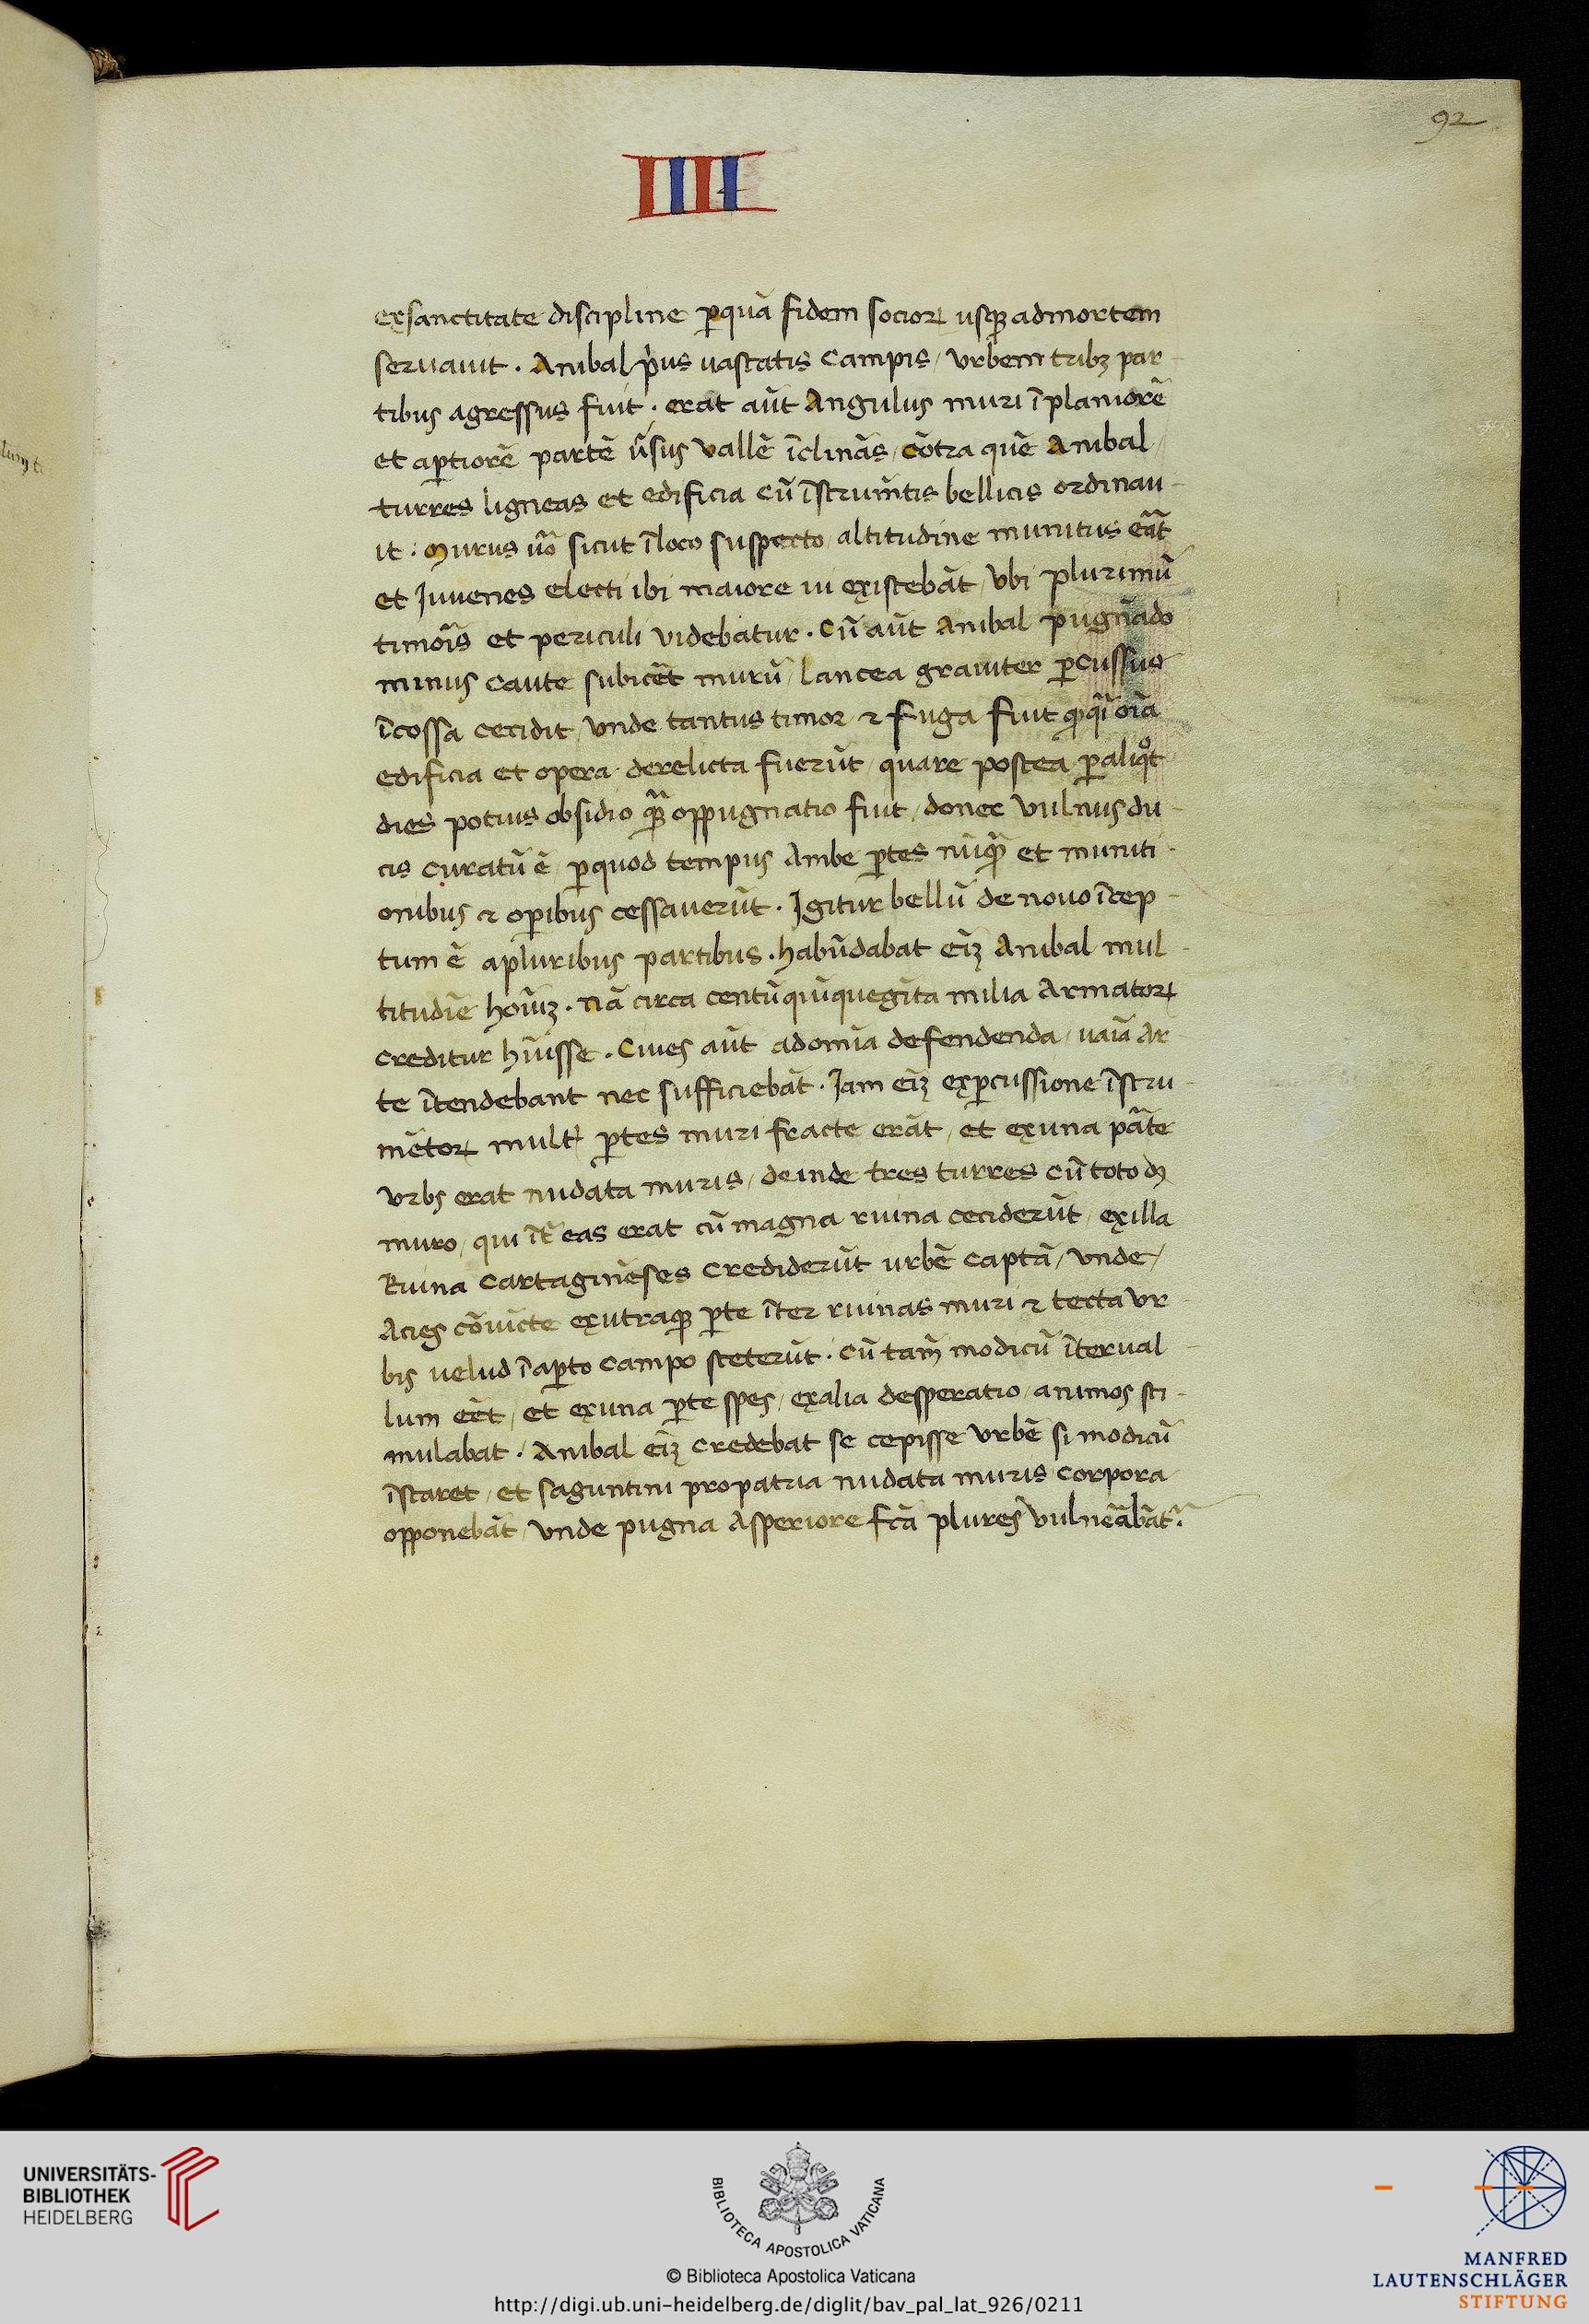 92
IIII
exsanctitate discipline ꝑquā fidem socioꝝ usqꝫ admortem
seruauit . Anibal p̄us uastatis campis / vrbem tribꝫ par-
tibus agressus fuit . erat aūt Angulus muri ī planiorē
et aꝑtiorē partē ūsus vallē īclinās / cōtra quē Anibal /
turres ligneas et edificia cū īstrum̄tis bellicis ordinau-
it : Murus uō sicut ī loco suspecto altitudine munitus eāt
et Juuenes electi ibi maiore ui existebāt / vbi plurimū
timoīs et periculi videbatur . Cū aūt Anibal pugnādo
minus caute subicēt murū / lancea grauiter ꝑcussus
ī cossa cecidit / vnde tantus timor ⁊ fuga fuit ꝙ q̄i oīa
edificia et opera derelicta fuerūt / quare postea ꝑ aliqͦt
dies potius obsidio qꝫ̄ oppugnatio fuit / donec vulnus du-
cis curatū ē / ꝑquod tempus Ambe ꝑtes nūqꝫ̄ et muniti-
onibus ⁊ oꝑibus cessauerūt . Igitur bellū de nouo īcep-
tum ē apluribus partibus . habūdabat eīꝫ Anibal mul-
titudīe hoīuꝫ . nā circa centū quīquegīta milia Armatoꝝ
creditur hūisse . Ciues aūt adomīa defendenda / uaīa Ar-
te ītendebant nec sufficiebāt . Iam eīꝫ exꝑcussione īstru-
mētoꝝ mult ꝑtes muri fracte erāt / et exuna pāte
vrbs erat nudata muris / deinde tres turres cū toto
muro / qui īt eas erat cū magna ruina ceciderūt / exilla
Ruina Cartaginēses crediderūt urbē captā / vnde /
Acies cōuīcte exutraqꝫ ꝑte īter ruinas muri ⁊ tecta vr-
bis uelud ī aꝑto campo steterūt . cū tam̄ modicū īterual-
lum eēt / et exuna ꝑte spes / exalia desperatio / animos sti-
mulabat . Anibal eīꝫ credebat se cepisse vrbē si modicū
īstaret / et saguntini propatria nudata muris corpora
opponebāt / vnde pugna Asperiore fcā plures vulneābāt̄ .
UNIVERSITÄTS-
BIBLIOTHEK
HEIDELBERG
BIBLIOTECA APOSTOLICA VATICANA
© Biblioteca Apostolica Vaticana
http://digi.ub.uni-heidelberg.de/diglit/bav_pal_lat_926/0211
MANFRED
LAUTENSCHLÄGER
STIFTUNG